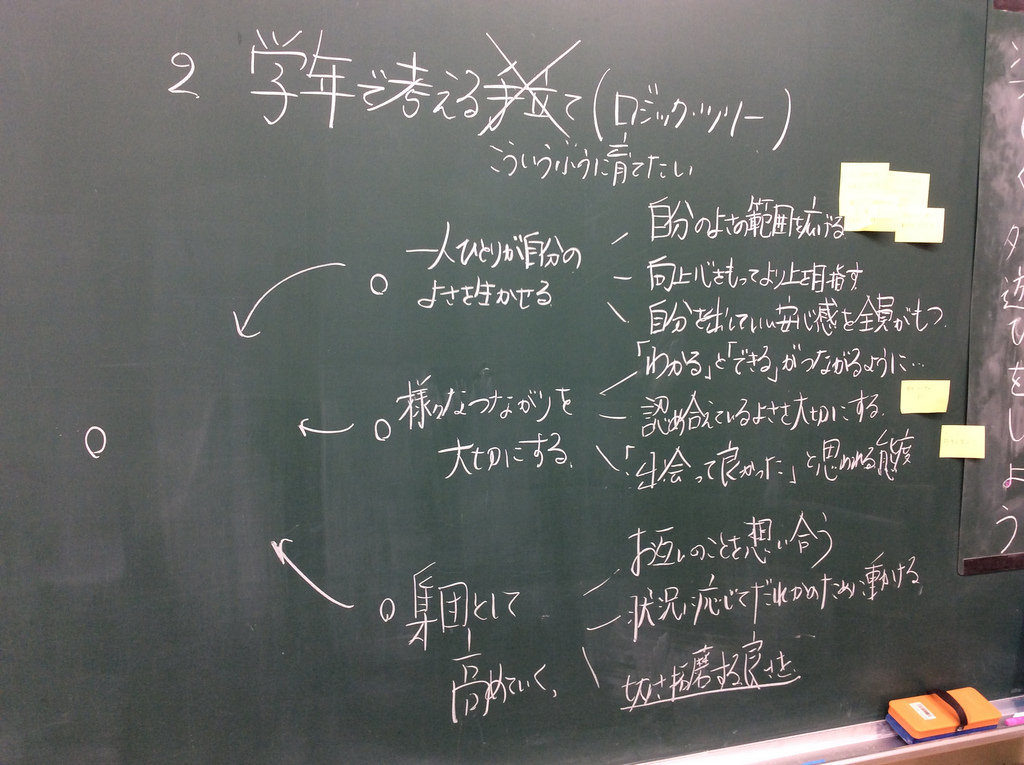 2 学年で考える子育て(ロジック・ツリー)
こういうふうに育てたい
一人ひとりが自分の
よさを生かせる
自分のよさの範囲を広げる
向上心をもってより上を目指す
自分を出していい安心感を全員がもつ
様々なつながりを
大切にする。
「わかる」と「できる」がつながるように…
認め合えているよさを大切にする。
「出会って良かった」と思われる態度
集団として
高めていく。
お互いのことを想い合う
状況に応じてだれかのために動ける
切さ琢磨する良さを
遊びをしよう